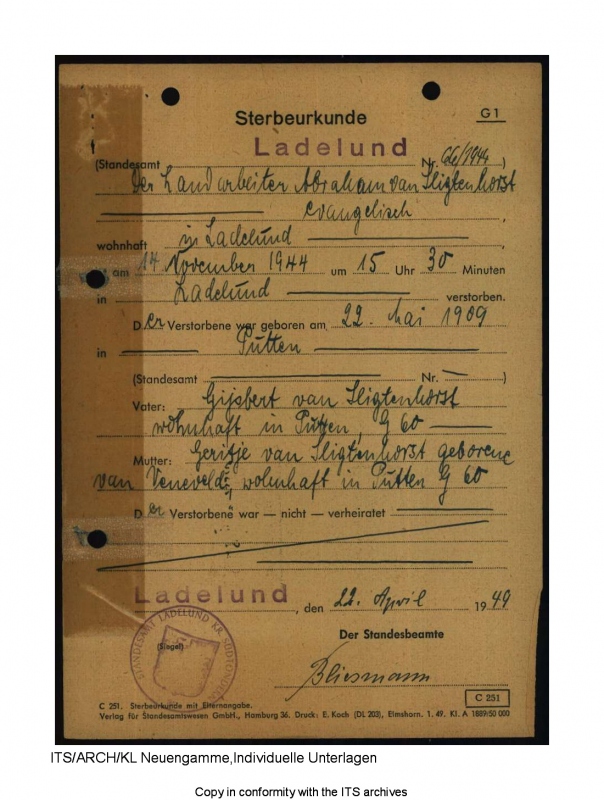 Sterbeurkunde
G 1
Ladelund
(Standesamt Nr. 66/1944)
Der Landarbeiter Abraham van Sligtenhorst
evangelisch,
wohnhaft in Ladelund
ist am 14 November 1944 um 15 Uhr 30 Minuten
in Ladelund verstorben.
Der Verstorbene war geboren am 22. Mai 1909
in Putten
(Standesamt Nr. — )
Vater: Gijsbert van Sligtenhorst
wohnhaft in Putten, G 60
Mutter: Gerritje van Sligtenhorst geborene
van Veneveld, wohnhaft in Putten G 60
Der Verstorbene war — nicht — verheiratet
Ladelund, den 22. April 1949
STANDESAMT LADELUND KR. SÜDTONDERN
(Siegel)
Der Standesbeamte
Bliesmann
C 251
C 251. Sterbeurkunde mit Elternangabe.
Verlag für Standesamtswesen GmbH., Hamburg 36. Druck: E. Koch (DL 203), Elmshorn. 1. 49. Kl. A 1889/50 000
ITS/ARCH/KL Neuengamme,Individuelle Unterlagen
Copy in conformity with the ITS archives